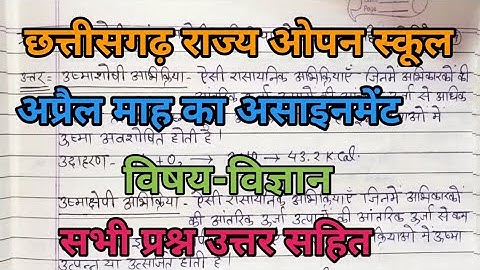 Page
छत्तीसगढ़ राज्य ओपन स्कूल
उत्तर:- उष्माशोषी अभिक्रिया - ऐसी रासायनिक अभिक्रियाएँ जिनमें अभिकारकों की
अप्रैल माह का असाइनमेंट
से अधिक
में
उष्मा अवशोषित होती है।
उदाहरण - + O₂ → → - 43.2 K.Cal.
विषय-विज्ञान
उष्माक्षेपी अभिक्रिया - ऐसी रासायनिक अभिक्रियाएँ जिनमें अभिकारकों
की आंतरिक ऊर्जा उत्पादों की आंतरिक ऊर्जा से कम
सभी प्रश्न उत्तर सहित
में ऊष्मा
उत्पन्न या उत्सर्जित होती है।